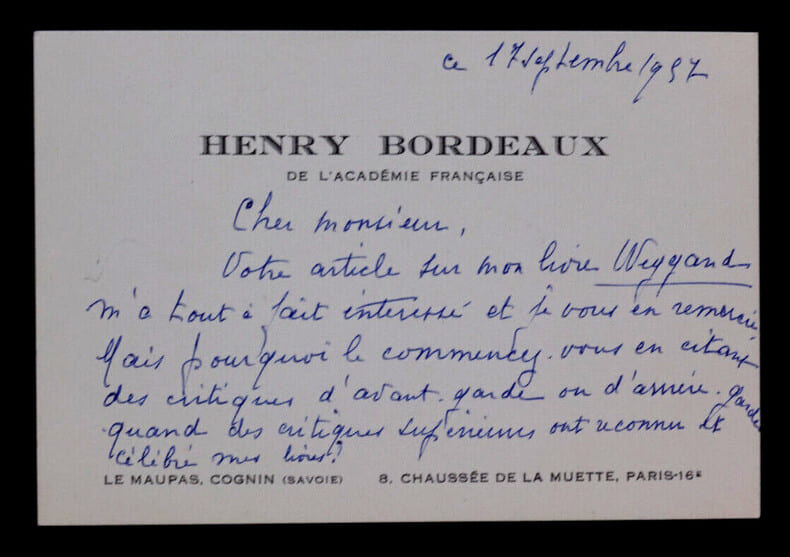 ce 17 septembre 1957
HENRY BORDEAUX
DE L'ACADÉMIE FRANÇAISE
Cher monsieur,
Votre article sur mon livre Weygand
m'a tout à fait interessé et je vous en remercie
Mais pourquoi le commencez-vous en citant
des critiques d'avant-garde ou d'arrière-garde
quand des critiques supérieurs ont reconnu et
célébré mes livres?
LE MAUPAS, COGNIN (SAVOIE) 8, CHAUSSÉE DE LA MUETTE, PARIS-16ᴱ